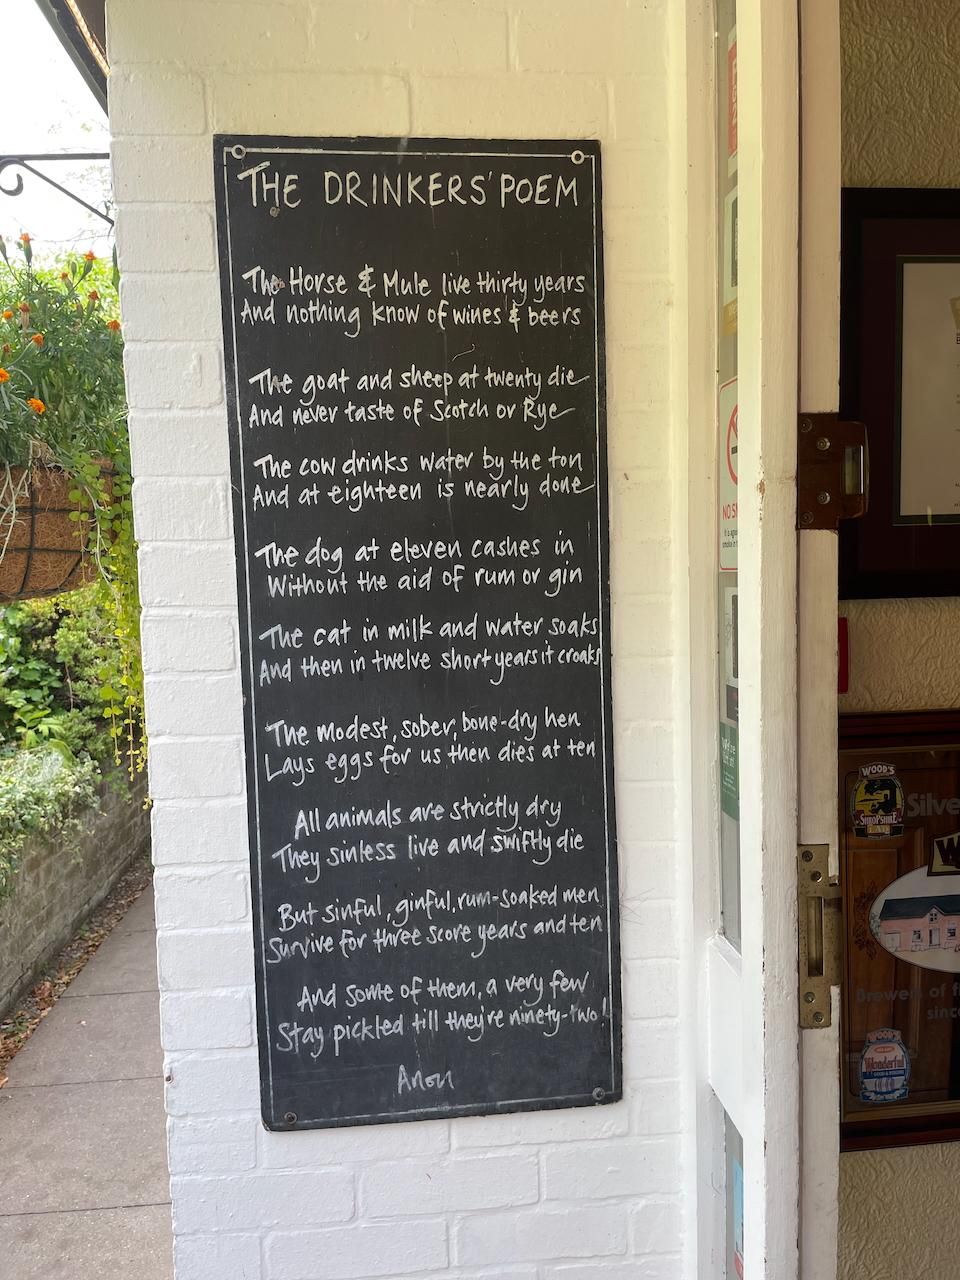 THE DRINKERS' POEM
The Horse & Mule live thirty years
And nothing know of wines & beers
The goat and sheep at twenty die
And never taste of Scotch or Rye
The cow drinks water by the ton
And at eighteen is nearly done
The dog at eleven cashes in
Without the aid of rum or gin
The cat in milk and water soaks
And then in twelve short years it croaks
The Modest, sober, bone-dry hen
Lays eggs for us then dies at ten
All animals are strictly dry
They sinless live and swiftly die
But sinful, ginful, rum-soaked men
Survive for three score years and ten
And some of them, a very few
Stay pickled till they're ninety-two!
Anon
NO SM
WOOD'S
SHROPSHIRE
LAD
Silve
Brewers of f
since
WOOD'S
Wonderful